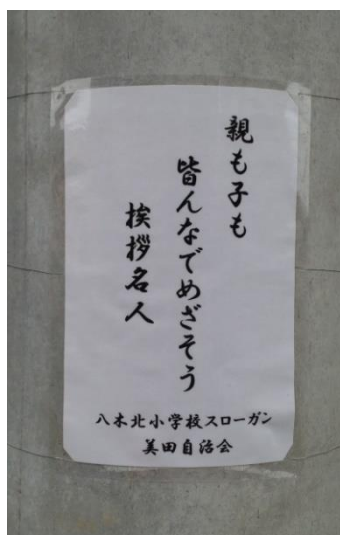 親も子も
皆んなでめざそう
挨拶名人
八木北小学校スローガン
美田自治会